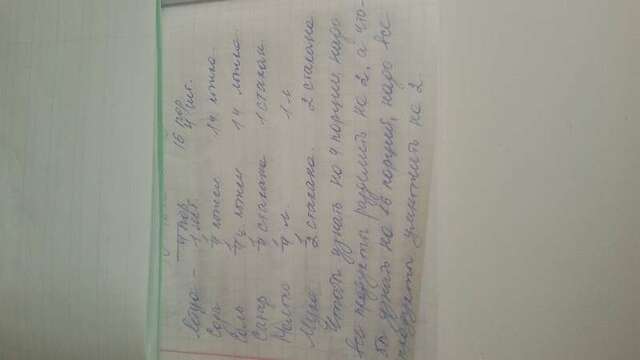 4 пор. 16 пор.
Яйца - 1 шт. 4 шт.
Сода 1/4 ложки 1 ч ложка
Соль 1/4 ложки 1 ч ложка
Сахар 1/4 стакана 1 стакан
Молоко 1/4 л. 1 л.
Мука 1/2 стакана 2 стакана
Чтобы узнать на 4 порции, надо
все продукты разделить на 2, а что-
бы узнать на 16 порций, надо все
продукты умножить на 2.